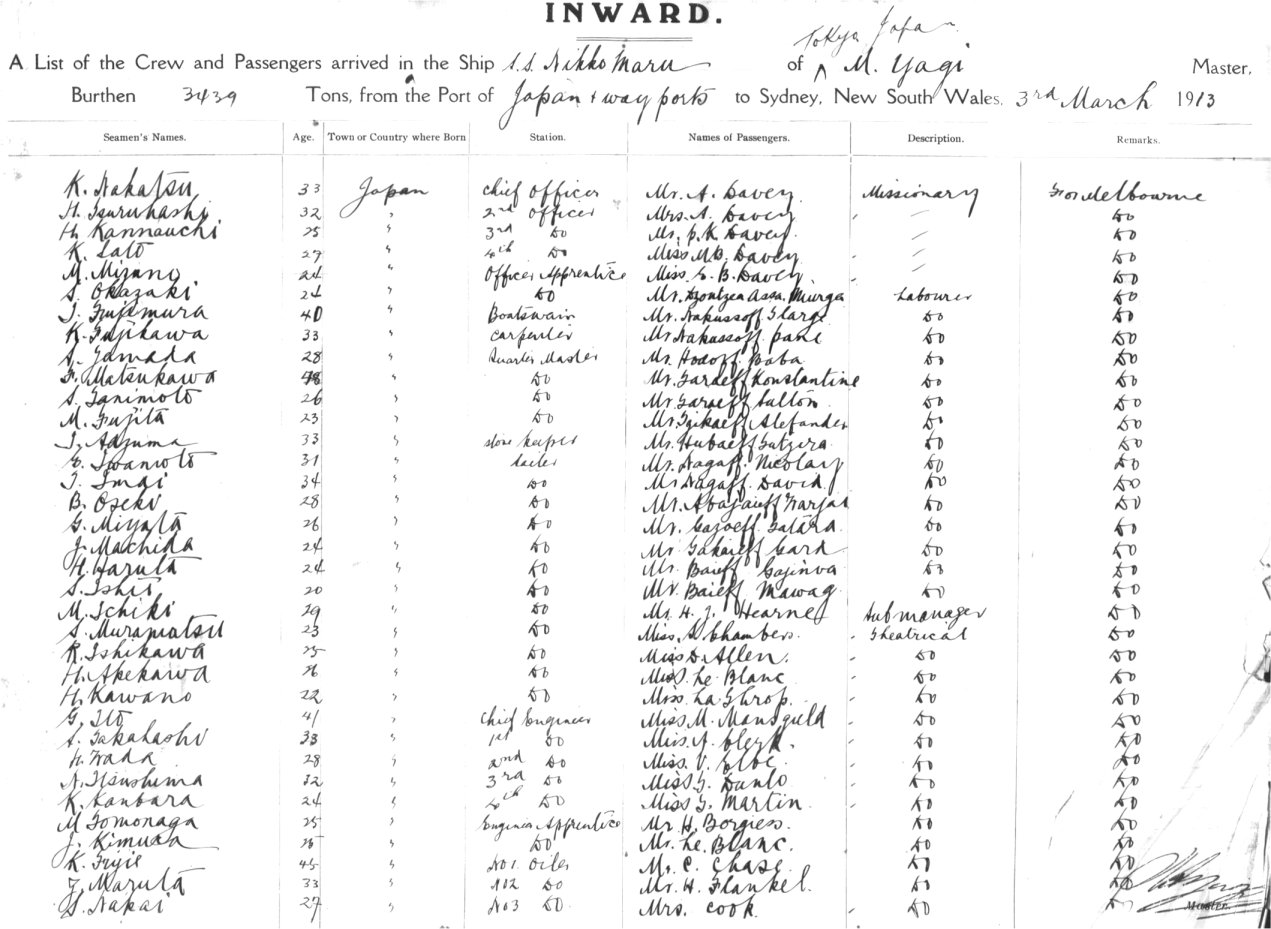 INWARD.
Tokyo Japan
A List of the Crew and Passengers arrived in the Ship S.S. Nikko Maru of ^ M. Yagi Master,
Burthen 3439 Tons, from the Port of Japan & way ports to Sydney, New South Wales, 3rd March 1913
Seamen's Names. Age. Town or Country where Born Station. Names of Passengers. Description. Remarks.
K. Nakatsu 33 Japan Chief Officer Mr. A. Davey Missionary From Melbourne
H. Tsuruhashi 32 " 2nd Officer Mrs. A. Davey " Do
H. Kannauchi 25 " 3rd Do Mr. P. K. Davey " Do
K. Sato 27 " 4th Do Miss M. B. Davey " Do
M. Mizuno 24 " Officer Apprentice Miss E. B. Davey " Do
S. Okazaki 24 " Do Mr. Murga Labourer Do
T. Fujimura 40 " Boatswain Mr. Nakussoff Do Do
K. Fujikawa 33 " Carpenter Mr Nakussoff Do Do
S. Yamada 28 " Quarter Master Mr. Hodoff Baba Do Do
F. Matsukawa " Do Mr. Konstantine Do Do
S. Tanimoto 26 " Do Mr. Do Do
M. Fujita 23 " Do Mr. Alefander Do Do
T. Adzuma 33 " Store keeper Mr. Hubaeff Do Do
Iwamoto 31 " Sailer Mr. Nagaff Nicolay Do Do
T. Imai 34 " Do Mr Nagaff David Do Do
B. Oseki 28 " Do Mr. Do Do
G. Miyata 26 " Do Mr. Gazoeff Do Do
J. Machida 24 " Do Mr Do Do
H. Haruta 24 " Do Mr. Baieff Do Do
S. Ishii 20 " Do Mr. Baieff Mawag Do Do
M. Ichiki 29 " Do Mr. H. J. Hearne Sub manager Do
S. Muramatsu 23 " Do Miss. A Chambers. Theatrical Do
R. Ishikawa 25 " Do Miss D. Allen. Do Do
H. Akekawa 26 " Do Miss Le Blanc Do Do
H. Kawano 22 " Do Miss La Throp. Do Do
G. Ito 41 " Chief Engineer Miss M. Do Do
S. Takahashi 33 " 1st Do Miss. Clerk. Do Do
H. Wada 28 " 2nd Do Miss. V. Do Do
N. Tsushima 32 " 3rd Do Miss G. Danlo Do Do
K. Kanbara 24 " 4th Do Miss G. Martin Do Do
M Tomonaga 25 " Engineer Apprentice Mr H. Borgiess. Do Do
J. Kimura 25 " Do Mr. Le Blanc. Do Do
K. Fujie 45 " No 1 Oiler Mr. C. Chase Do Do
T. Maruta 33 " No 2 Do Mr. H. Flankel. Do Do
S. Nakai 27 " No 3 Do Mrs. Cook Do Do
Master.